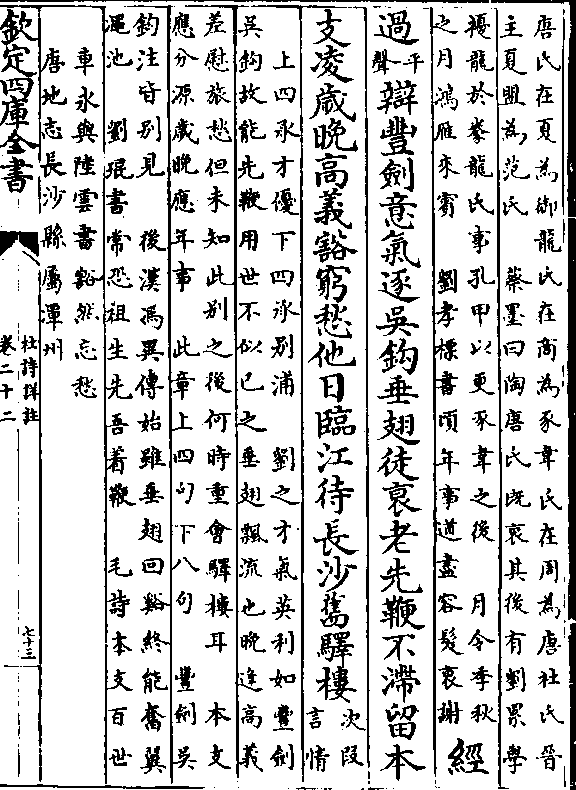 唐氏在夏為御龍氏在商為豕韋氏在周為唐杜氏晉
主夏盟為范氏　蔡墨曰陶唐氏既衰其後有劉累學
擾龍於豢龍氏事孔甲以更豕韋之後　月令季秋
之月鴻雁來賓　劉孝標書頃年事遒盡容髮衰謝
經
過平聲辯豐劍意氣逐吳鈎垂翅徒衰老先鞭不滯留本
支凌歲晚高義豁窮愁他日臨江待長沙舊驛樓次段言情
上四承才優下四泳别浦　劉之才氣英利如豐劍
吳鈎故能先鞭用世不似已之垂翅飄流也晚逢高義
差慰旅愁但未知此别之後何時重會驛樓耳　本支
應分源歲晚應年事　此章上四句下八句　豐劍吳
鈎注皆别見　後漢馮異傳始雖垂翅回谿終能奮翼
澠池　劉琨書常恐祖生先吾着鞭　毛詩本支百世
車永與陸雲書豁然忘愁
唐地志長沙縣屬潭州
欽定四庫全書
杜詩詳註
卷二十二
七十三